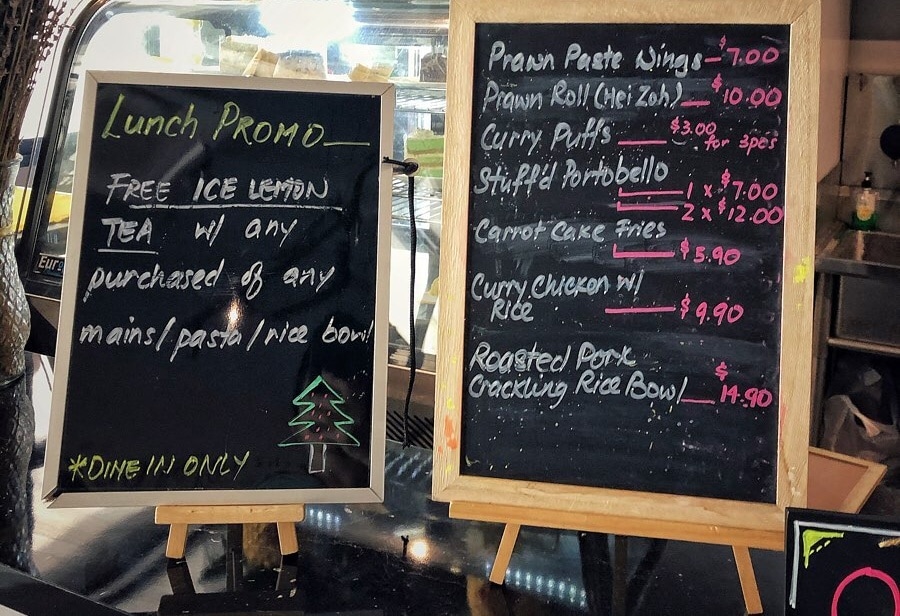 Lunch PROMO
FREE ICE LEMON
TEA w/ any
purchased of any
mains/pasta/rice bowl
*DINE IN ONLY
Prawn Paste Wings - $7.00
Prawn Roll (Hei Zoh) $10.00
Curry Puffs $3.00 for 3pcs
Stuff'd Portobello
1 x $7.00
2 x $12.00
Carrot Cake Fries
$5.90
Curry Chicken w/
Rice $9.90
Roasted Pork
Crackling Rice Bowl $14.90